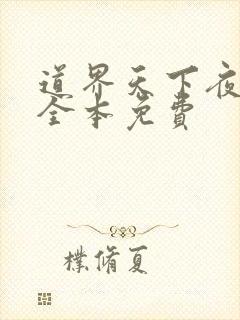 道界天下夜
全本免費
樸脩夏